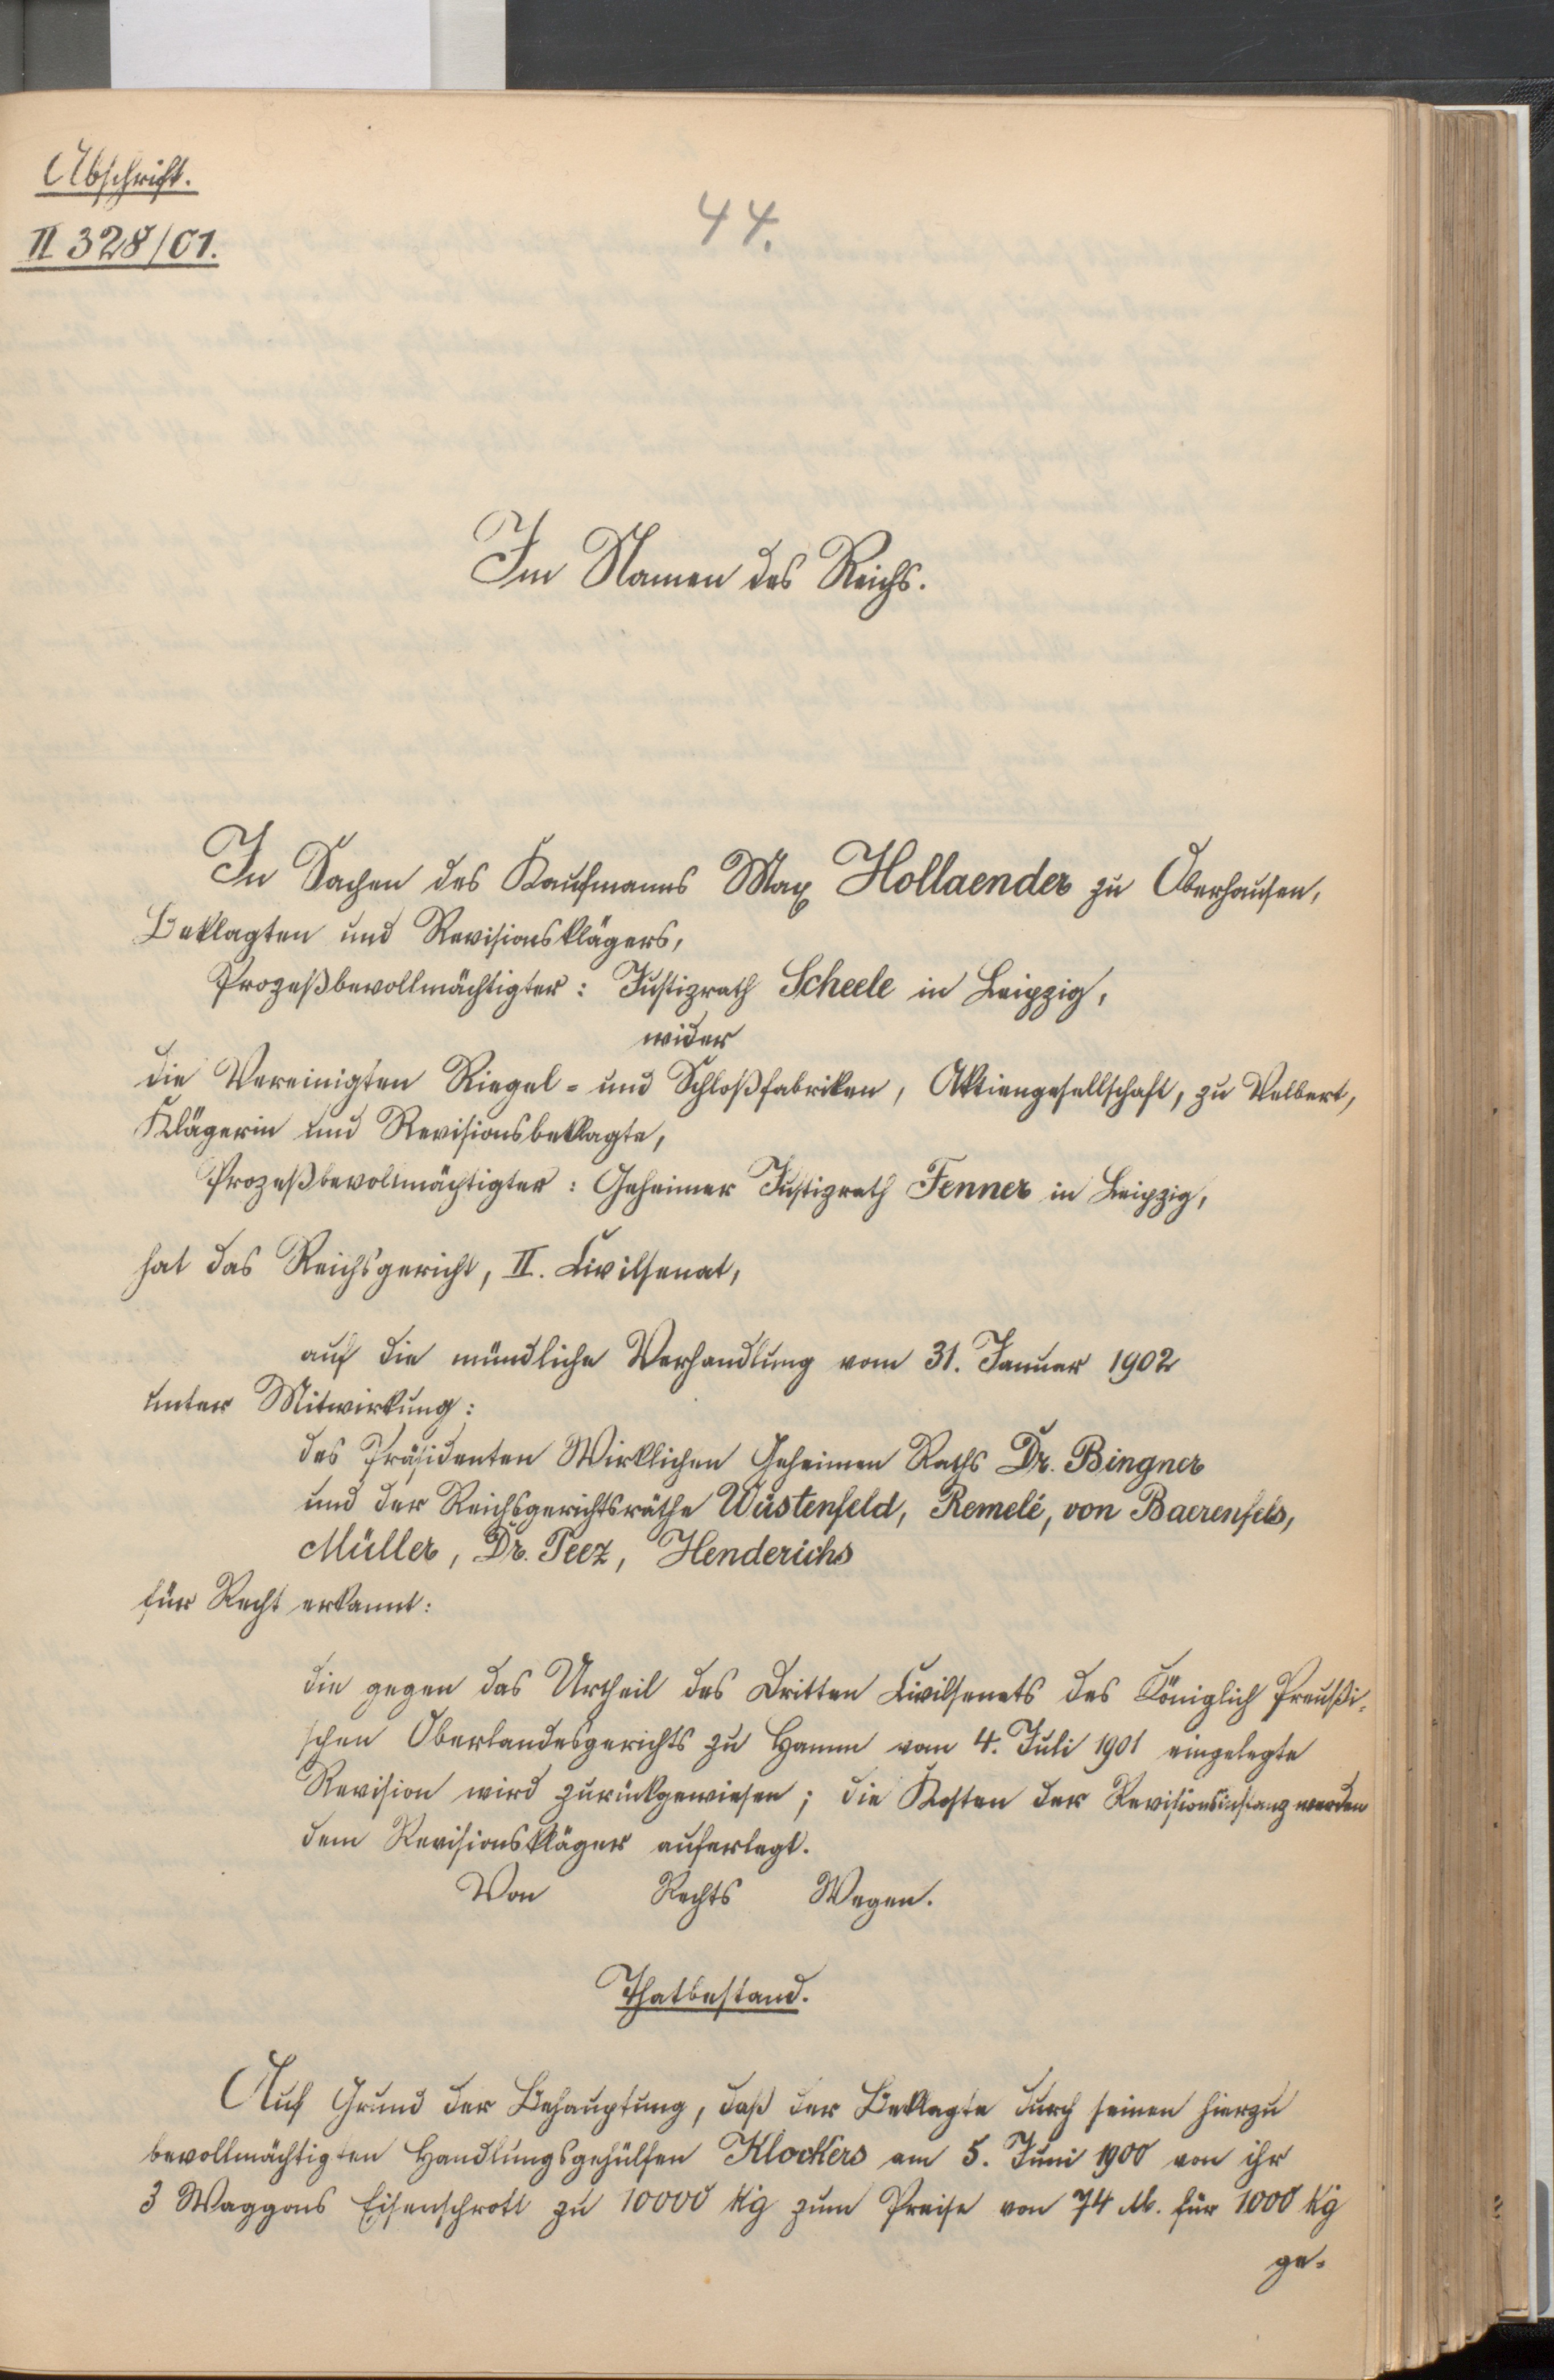 Abschrift.
II 328/01.
44.
Im Namen des Reichs.
In Sachen des Kaufmanns Max Hollaender zu Oberhausen,
Beklagten und Revisionsklägers,
Prozeßbevollmächtigter: Justizrath Scheele in Leipzig,
wider
die Vereinigten Riegel- und Schloßfabriken, Aktiengesellschaft, zu Velbert,
Klägerin und Revisionsbeklagte,
Prozeßbevollmächtigter: Geheimer Justizrath Fenner in Leipzig,
hat das Reichsgericht, II. Civilsenat,
auf die mündliche Verhandlung vom 31. Januar 1902
unter Mitwirkung:
des Präsidenten Wirklichen Geheimen Raths Dr. Bingner
und der Reichsgerichtsräthe Wüstenfeld, Remelé, von Baerenfels,
Müller, Dr. Peez, Henderichs
für Recht erkannt:
die gegen das Urtheil des Dritten Civilsenats des Königlich Preußi-
schen Oberlandesgerichts zu Hamm vom 4. Juli 1901 eingelegte
Revision wird zurückgewiesen; die Kosten der Revisionsinstanz werden
dem Revisionskläger auferlegt.
Von Rechts Wegen.
Thatbestand.
Auf Grund der Behauptung, daß der Beklagte durch seinen hierzu
bevollmächtigten Handlungsgehülfen Klockers am 5. Juni 1900 von ihr
3 Waggons Eisenschrott zu 10000 kg zum Preise von 74 M. für 1000 kg
ge-